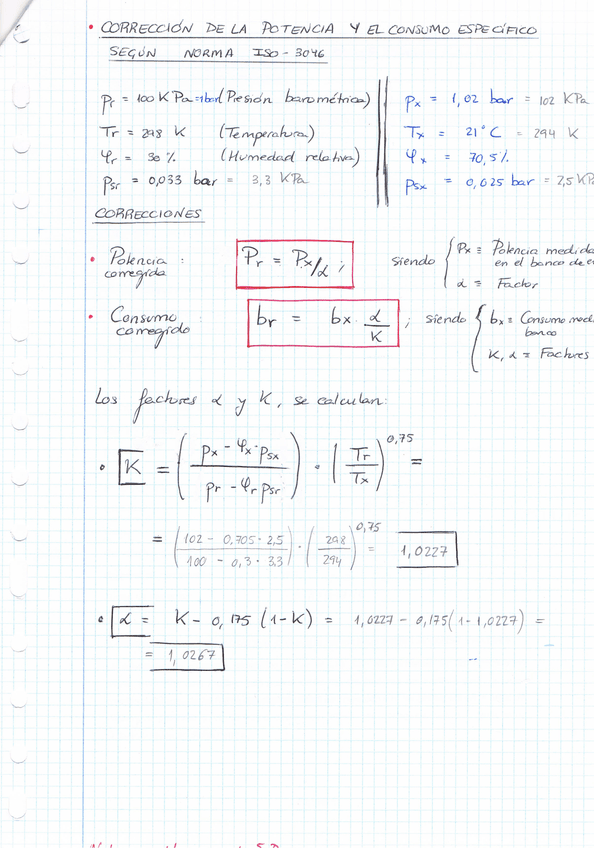 • CORRECCIÓN DE LA POTENCIA Y EL CONSUMO ESPECÍFICO
SEGÚN NORMA ISO-3046
Pr = 100 KPa = 1bar (Presión barométrica)
Tr = 298 K (Temperatura)
φr = 30 % (Humedad relativa)
Psr = 0,033 bar = 3,3 KPa
Px = 1,02 bar = 102 KPa
Tx = 21°C = 294 K
φx = 70,5%
Psx = 0,025 bar = 2,5 KPa
CORRECCIONES
• Potencia corregida : Pr = Px/α ; siendo { Px ≡ Potencia medida en el banco de
α ≡ Factor
• Consumo corregido : br = bx · α/K ; siendo { bx ≡ Consumo med
banco
K, α ≡ Factores
Los factores α y K, se calculan:
• K = ((Px - φx · Psx) / (Pr - φr Psr)) · (Tr/Tx)^0,75 =
= ((102 - 0,705 · 2,5) / (100 - 0,3 · 3,3)) · (298/294)^0,75 = 1,0227
• α = K - 0,175 (1-K) = 1,0227 - 0,175(1-1,0227) =
= 1,0267